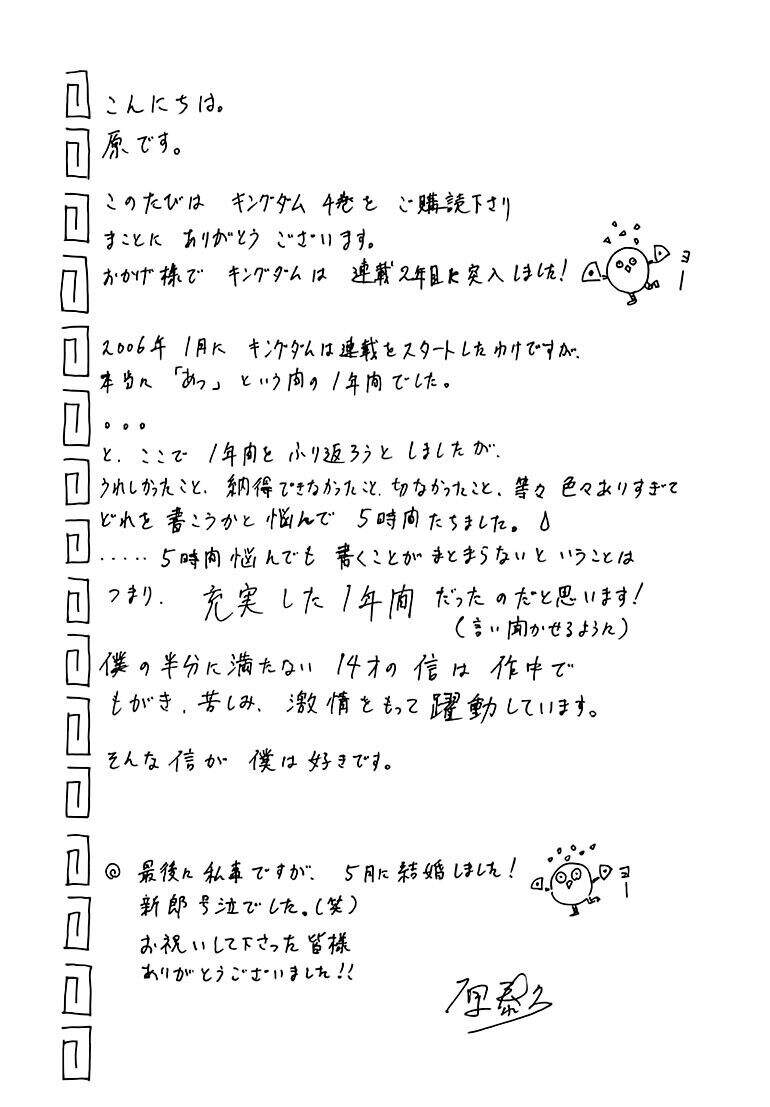 こんにちは。
原です。
このたびは キングダム 4巻を ご購読下さり
まことに ありがとう ございます。
おかげ様で キングダムは 連載2年目に突入しました!
ヨー
2006年 1月に キングダムは連載をスタートしたわけですが、
本当に「あっ」という間の1年間でした。
。。。
と、ここで 1年間を ふり返ろうと しましたが、
うれしかったこと、納得できなかったこと、切なかったこと、等々 色々ありすぎて
どれを 書こうかと 悩んで 5時間たちました。
‥‥‥5時間悩んでも 書くことが まとまらないと いうことは
つまり、充実した1年間 だったのだと思います!
(言い聞かせるように)
僕の半分に満たない 14才の 信は 作中で
もがき、苦しみ、激情をもって躍動しています。
そんな信が 僕は好きです。
◎ 最後に私事ですが、5月に結婚しました!
ヨー
新郎号泣でした。(笑)
お祝いして下さった皆様
ありがとうございました!!
原泰久